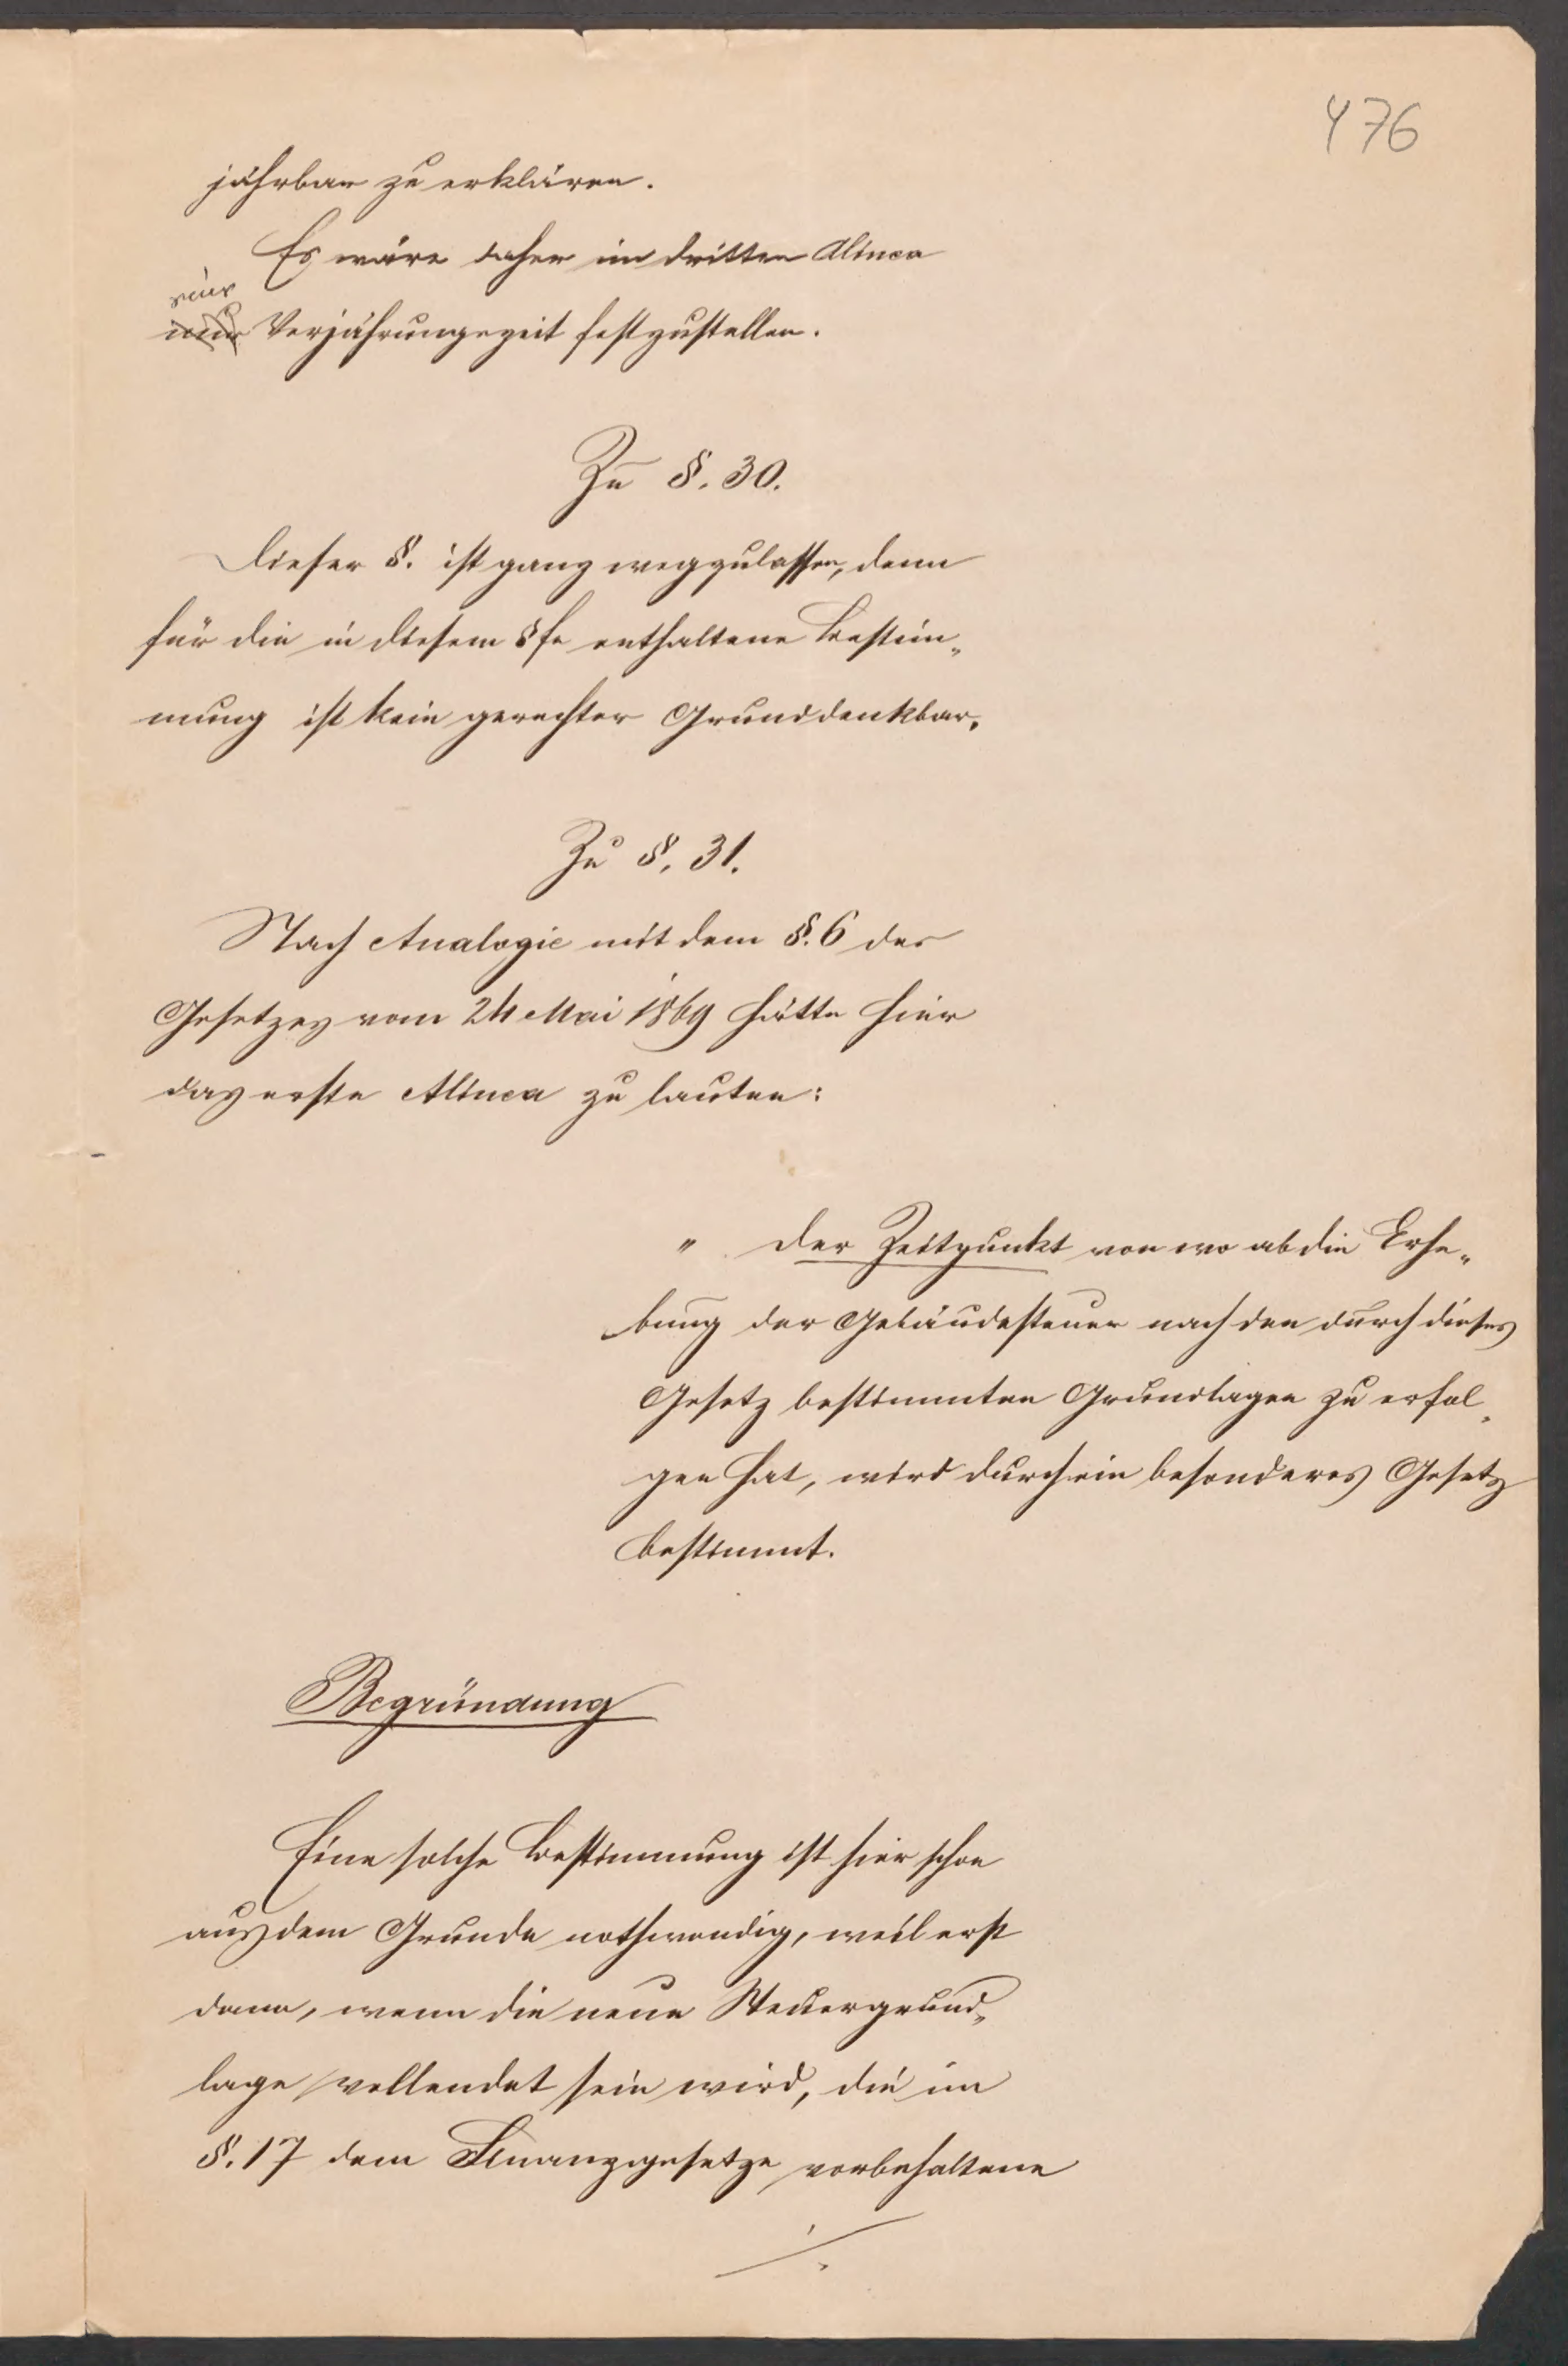 476
jährbar zu erklären.
Es wäre daher im dritten Alinea
eine
nur Verjährungszeit festzustellen.
Zu §. 30.
Dieser §. ist ganz wegzulassen, denn
für die in diesem §fe enthaltene Bestim„
mung ist kein gerechter Grund denkbar.
Zu §. 31.
Nach Analogie mit dem §. 6 des
Gesetzes vom 24 Mai 1869 hätte hier
das erste Alinea zu lauten:
" Der Zeitpunkt von wo ab die Erhe„
bung der Gebäudesteuer nach den durch dieses
Gesetz bestimmten Grundlagen zu erfol„
gen hat, wird durch ein besonderes Gesetz
bestimmt.
Begründung
Eine solche Bestimmung ist hier schon
aus dem Grunde nothwendig, weil erst
dann, wenn die neue Steuergrund„
lage vollendet sein wird, die im
§. 17 dem Finanzgesetze vorbehaltene
./.